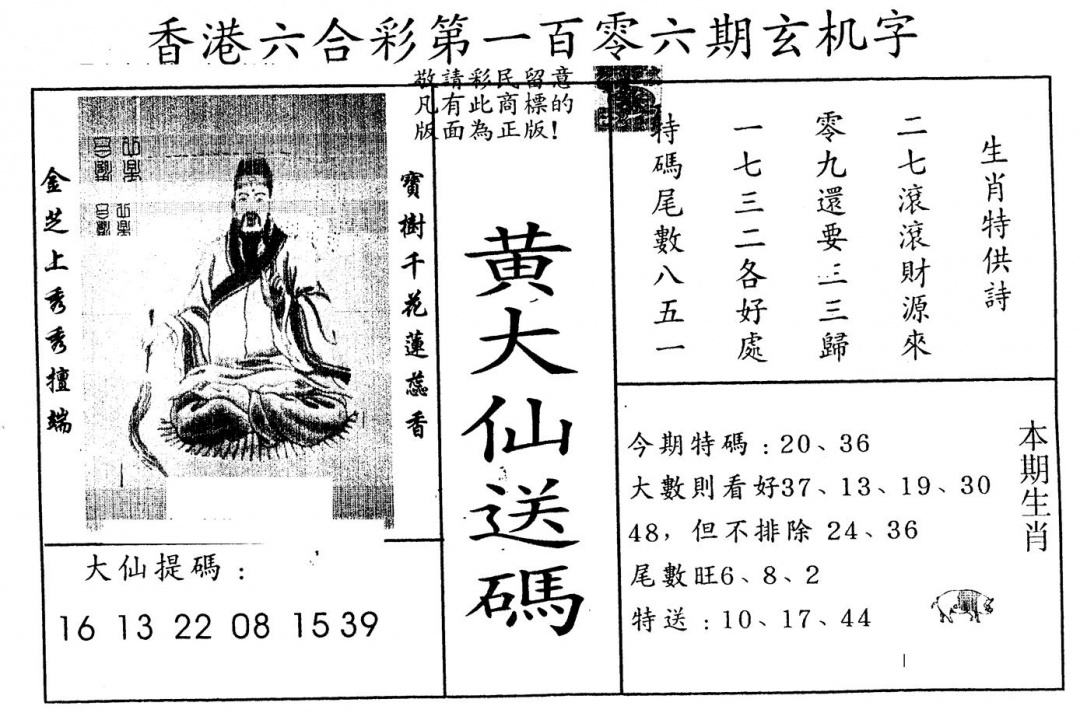 香港六合彩第一百零六期玄机字
敬請彩民留意
凡有此商標的
版面為正版!
生肖特供詩
二七滾滾財源來
零九還要三三歸
一七三二各好處
特碼尾數八五一
寶樹千花蓮蕊香
金芝上秀秀擅端
黄大仙送碼
大仙提碼：
16 13 22 08 15 39
本期生肖
今期特碼：20、36
大數則看好37、13、19、30
48，但不排除 24、36
尾數旺6、8、2
特送：10、17、44